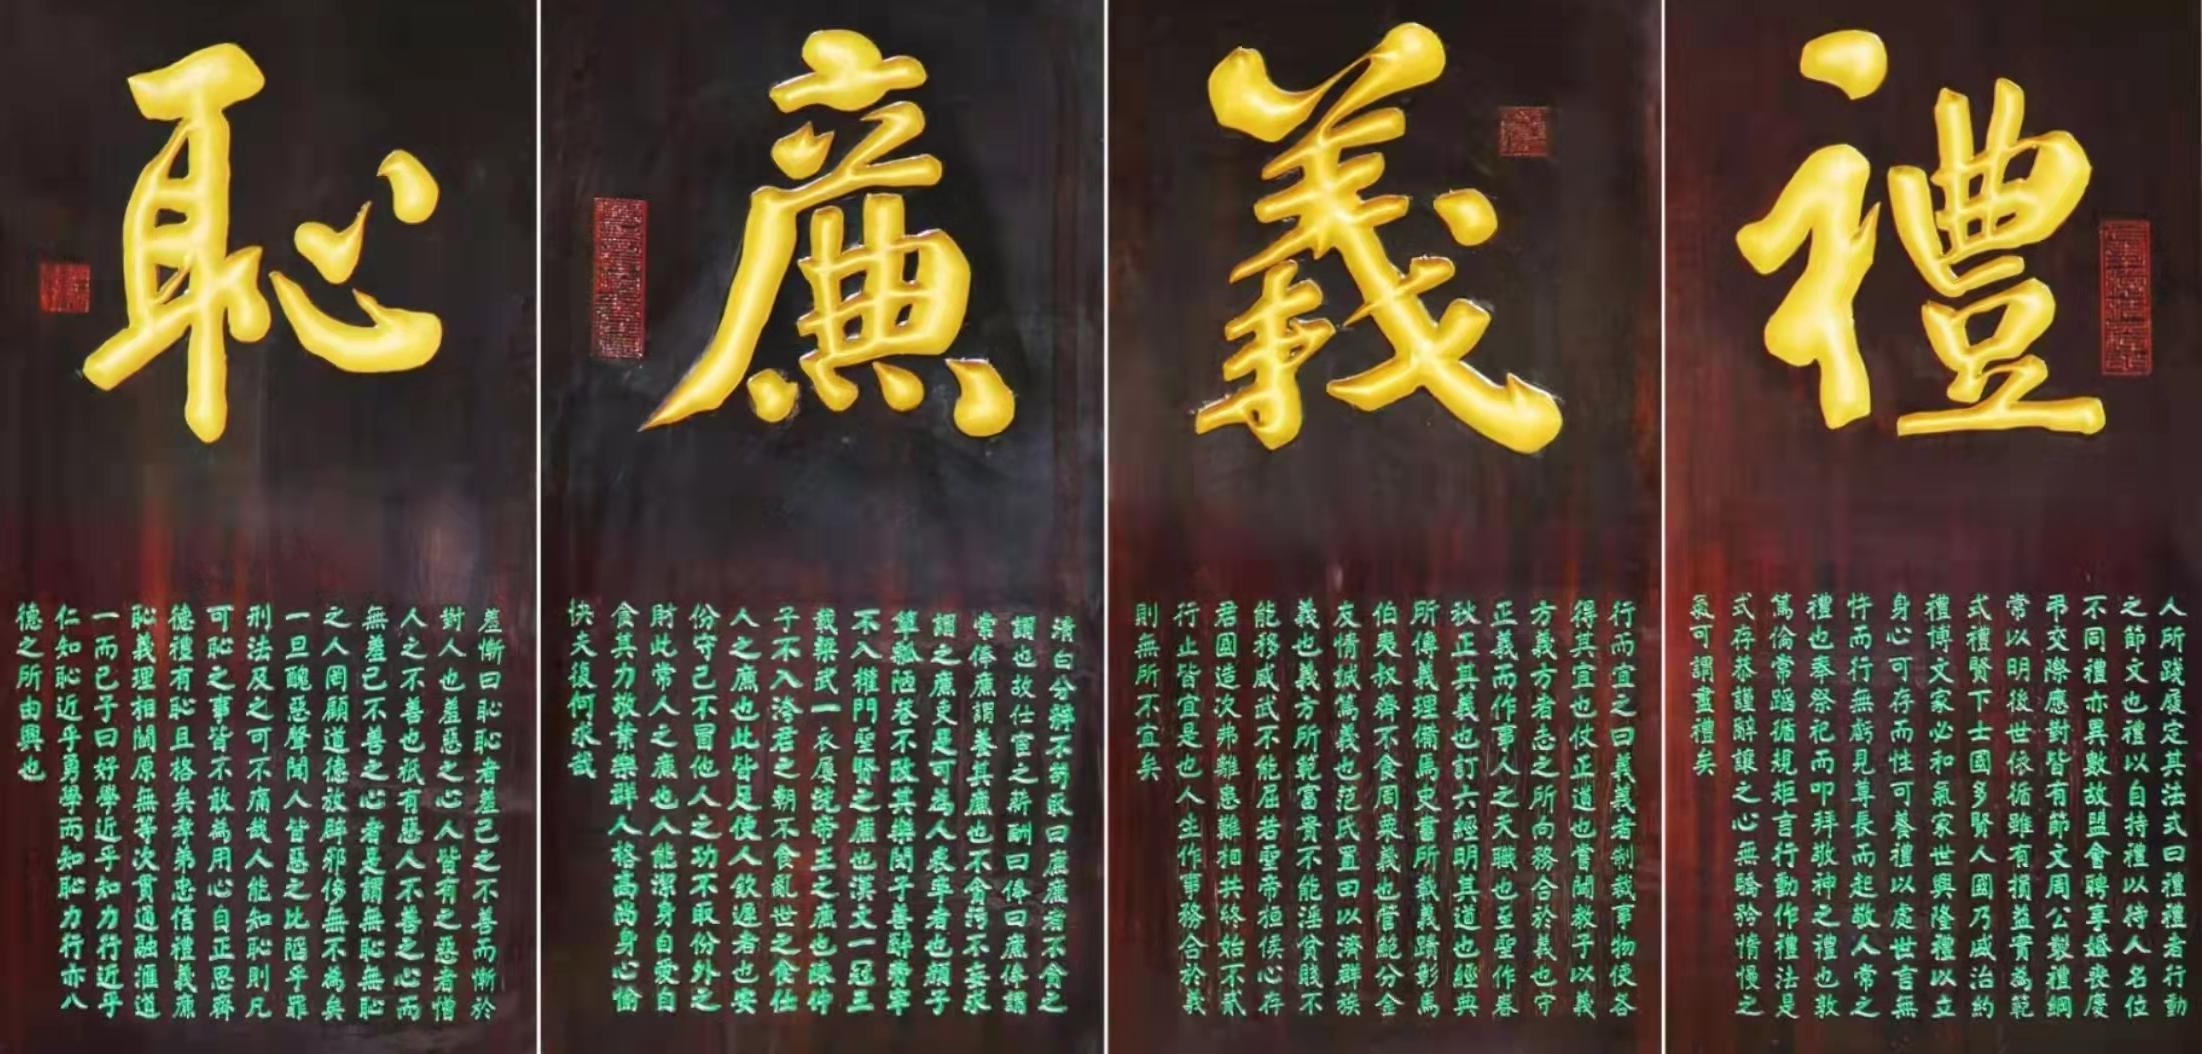 禮
人所踐履定其法式曰禮禮者行動
之節文也禮以自持禮以待人名位
不同禮亦異數故盟會聘享婚喪慶
弔交際應對皆有節文周公製禮綱
常以明後世依循雖有損益實為範
式禮賢下士國多賢人國乃咸治約
禮博文家必和氣家世興隆禮以立
身心可存而性可養禮以處世言無
忤而行無虧見尊長而起敬人常之
禮也奉祭祀而叩拜敬神之禮也敦
篤倫常蹈循規矩言行動作禮法是
式存恭謹辭讓之心無驕矜惰慢之
氣可謂盡禮矣
義
行而宜之曰義義者制裁事物使各
得其宜也仗正道也嘗聞教子以義
方義方者志之所向務合於義也守
正義而作事人之天職也至聖作春
秋正其義也訂六經明其道也經典
所傳義理備焉史書所載義蹟彰焉
伯夷叔齊不食周粟義也管鮑分金
友情誠篤義也范氏置田以濟群族
義也義方所範富貴不能淫貧賤不
能移威武不能屈若聖帝桓侯心存
君國造次弗離患難相共終始不貳
行止皆宜是也人生作事務合於義
則無所不宜矣
廉
清白分辨不苟取曰廉廉者不貪之
謂也故仕官之薪酬曰俸曰廉俸謂
常俸廉謂養其廉也不貪污不妄求
謂之廉吏是可為人表率者也顏子
簞瓢陋巷不改其樂閔子善辭費宰
不入權門聖賢之廉也漢文一冠三
載梁武一衣屢浣帝王之廉也陳仲
子不入洿君之朝不食亂世之食仕
人之廉也此皆足使人欽遲者也安
份守己不冒他人之功不取份外之
財此常人之廉也人能潔身自愛自
食其力敬業樂群人格高尚身心愉
快夫復何求哉
恥
羞慚曰恥恥者羞己之不善而慚於
對人也羞惡之心人皆有之惡者憎
人之不善也祇有惡人不善之心而
無羞己不善之心者是謂無恥無恥
之人罔顧道德放辟邪侈無不為矣
一旦醜惡聲聞人皆惡之比陷乎罪
刑法及之可不痛哉人能知恥則凡
可恥之事皆不敢為用心自正思齊
德禮有恥且格矣孝弟忠信禮義廉
恥義理相關原無等次貫通融滙道
一而已子曰好學近乎知力行近乎
仁知恥近乎勇學而知恥力行亦八
德之所由興也